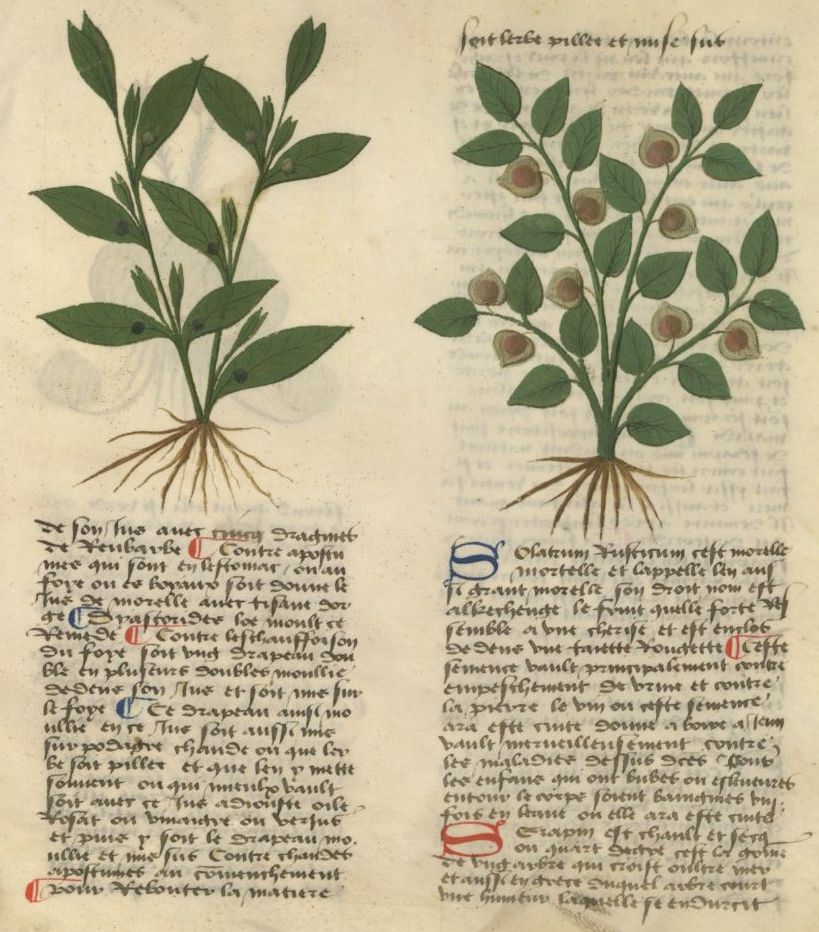 de son jus avec cincq dragmes
de Reubarbe ¶ Contre apostu
mes qui sont en lestomac ou au
foye ou es boyaux soit donne le
jus de morelle avec tisane dor
ge ¶ Dyastorides loe moult ce
Remede ¶ Contre leschauffoison
du foye soit ung drapeau dou
ble en plusieurs doubles moullie
dedens son jus et soit mis sur
le foye ¶ Ce drapeau ainsi mo
ullie en ce jus soit aussi mis
sur podagre chaude ou que ler
be soit pillee et que len y mette
souvent ou qui mieulx vault
soit avec ce jus adiouste oile
Rosat ou vinaigre ou verjus
et puis y soit le drapeau mo.
ullie et mis sus Contre chaudes
apostumes au commenchement
¶ pour Rebouter la matiere
soit lerbe pillee et mise sus
Solatrum Rusticum cest morelle
mortelle et lappelle len aus
si grant morelle son droit nom est
alkechenge le fruit quelle porte Res
semble a une cherise et est enclos
dedens une taiette Rougette ¶ Ceste
semence vault principalement contre
empeschement de urine et contre
la pierre le vin ou ceste semence
ara este cuite donne a boire a jeun
vault merveilleusement contre
les maladies dessus dictes
les enfans qui ont bubes ou esleueures
entour le corps soient baingnies
fois en leaue ou elle ara este cuite
Serapin est chault et secq
ou quart degre cest la gome
de ung arbre qui croist oultre mer
et aussi en grece duquel arbre court
une humeur laquelle se endurcit